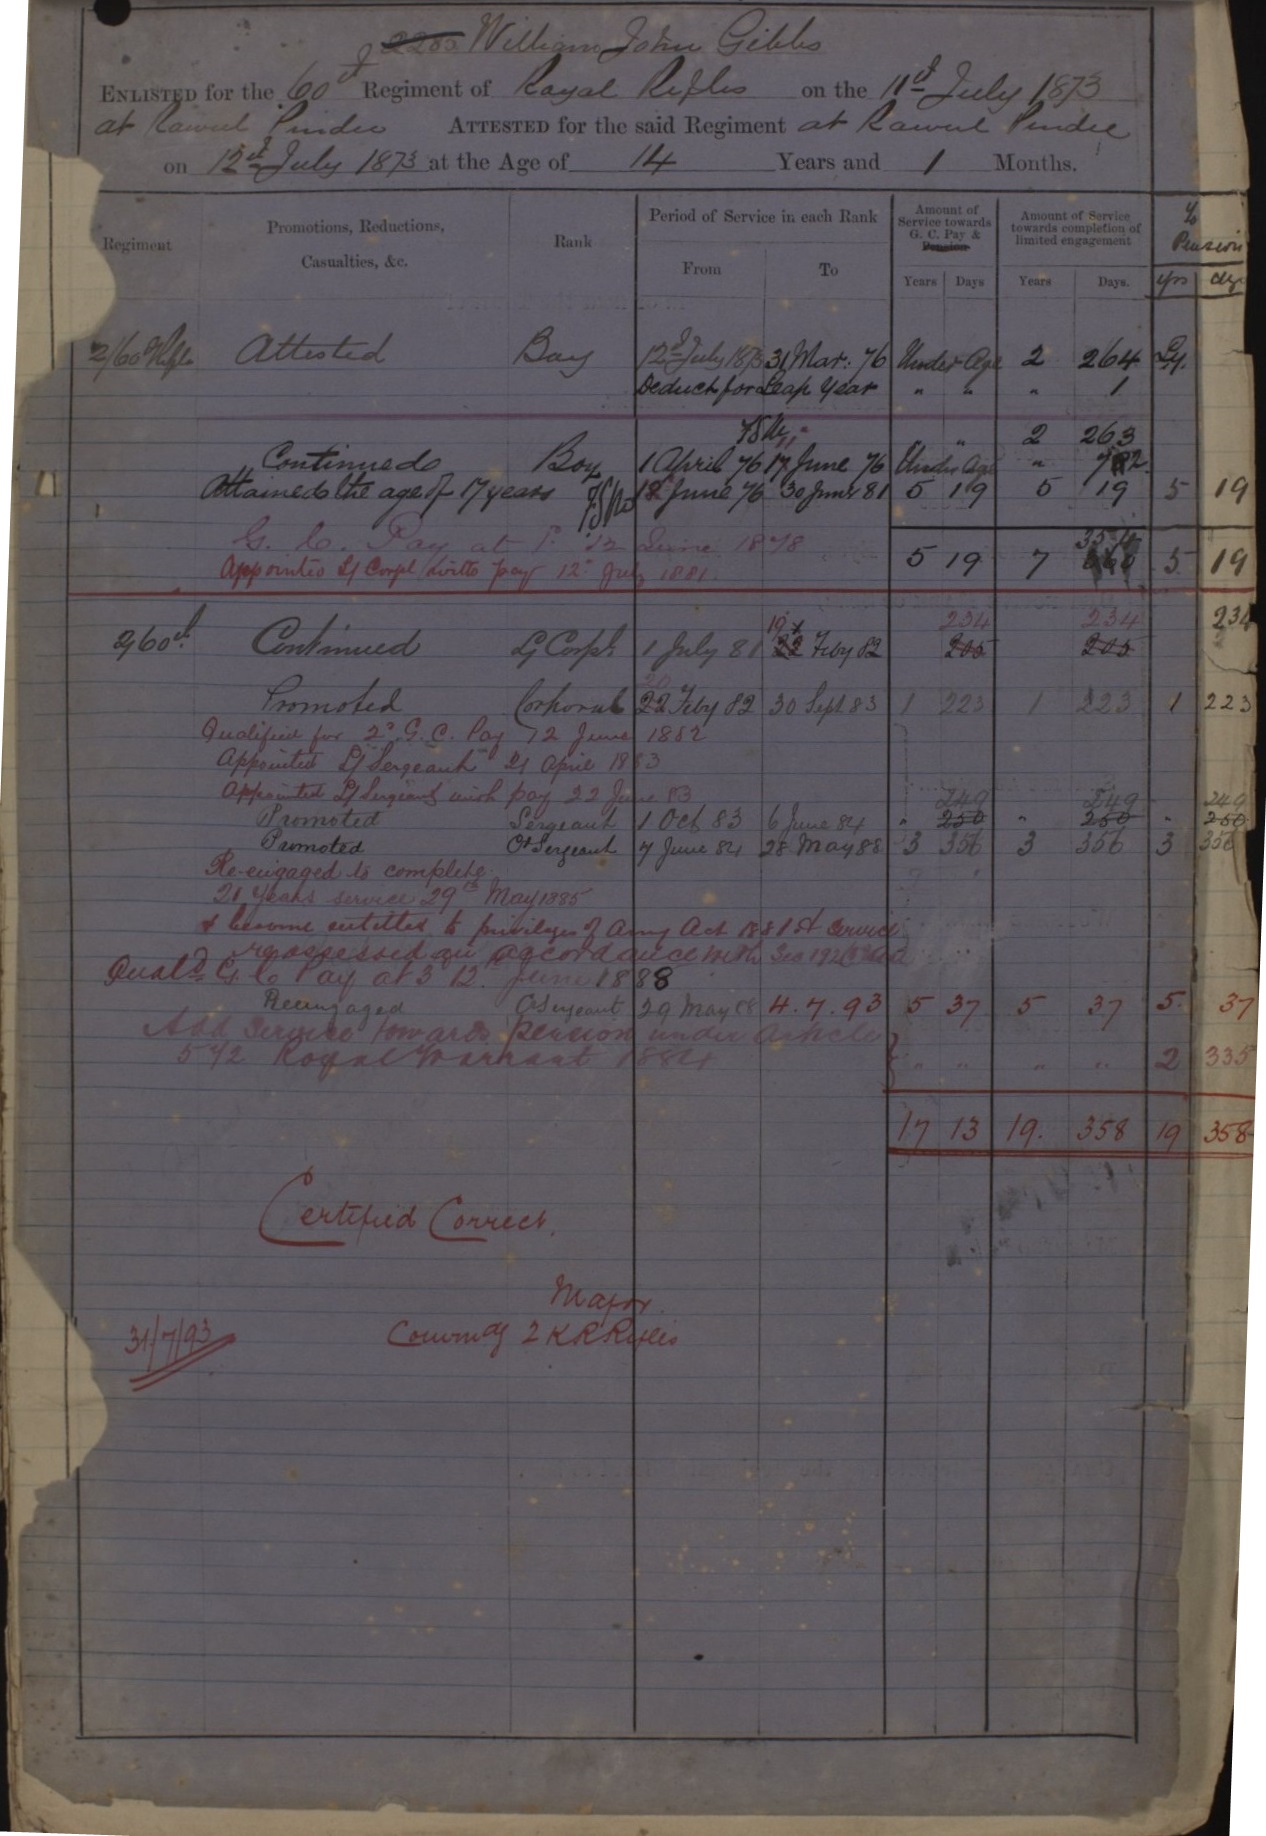 2205 William John Gibbs
ENLISTED for the 60th Regiment of Royal Rifles on the 11th July 1873
at Rawul Pindee ATTESTED for the said Regiment at Rawul Pindee
on 12th July 1873 at the Age of 14 Years and 1 Months.
Regiment
Promotions, Reductions,
Casualties, &c.
Rank
Period of Service in each Rank
From
To
Amount of
Service towards
G. C. Pay &
Pension
Years Days
Amount of Service
towards completion of
limited engagement
Years Days.
Pension
yrs dys
2/60 Rifles Attested Boy 12th July 1873 31 Mar: 76 Under Age 2 264
Deduct for Leap Year " " " 1
" 2 263
Continued Boy 1 April 76 17 June 76 Under Age "
Attained the age of 17 years 12 June 76 30 June 81 5 19 5 19 5 19
G. C. Pay at 1d 12 June 1878
5 19 7 354 5 19
Appointed L/ Corpl with pay 12 July 1881
234 234 234
2/60th Continued L/ Corpl 1 July 81 19 22 Feby 82 205 205
Promoted Corporal 20 22 Feby 82 30 Sept 83 1 223 1 223 1 223
Qualified for 2d G. C. Pay 12 June 1882
Appointed L/ Sergeant April 1883
Appointed L/ Sergeant with pay 22 June 83
249 249 249
Promoted Sergeant 1 Oct 83 6 June 84 " 250 " 250 " 250
Promoted Cr Sergeant 7 June 84 28 May 88 3 356 3 356 3 356
Re-engaged to complete
21 years service 29th May 1885
& become entitled to privileges of Army Act 1881 & service
reassessed in accordance with Sec
Quald G. C. Pay at 3 12 June 1888
Reengaged Cr Sergeant 29 May 88 4.7.93 5 37 5 37 5 37
Add service towards pension under Article
572 Royal Warrant 1884 " " " " 2 335
17 13 19. 358 19 358
Certified Correct.
Major
31/7/93 Commdg 2 K R Rifles